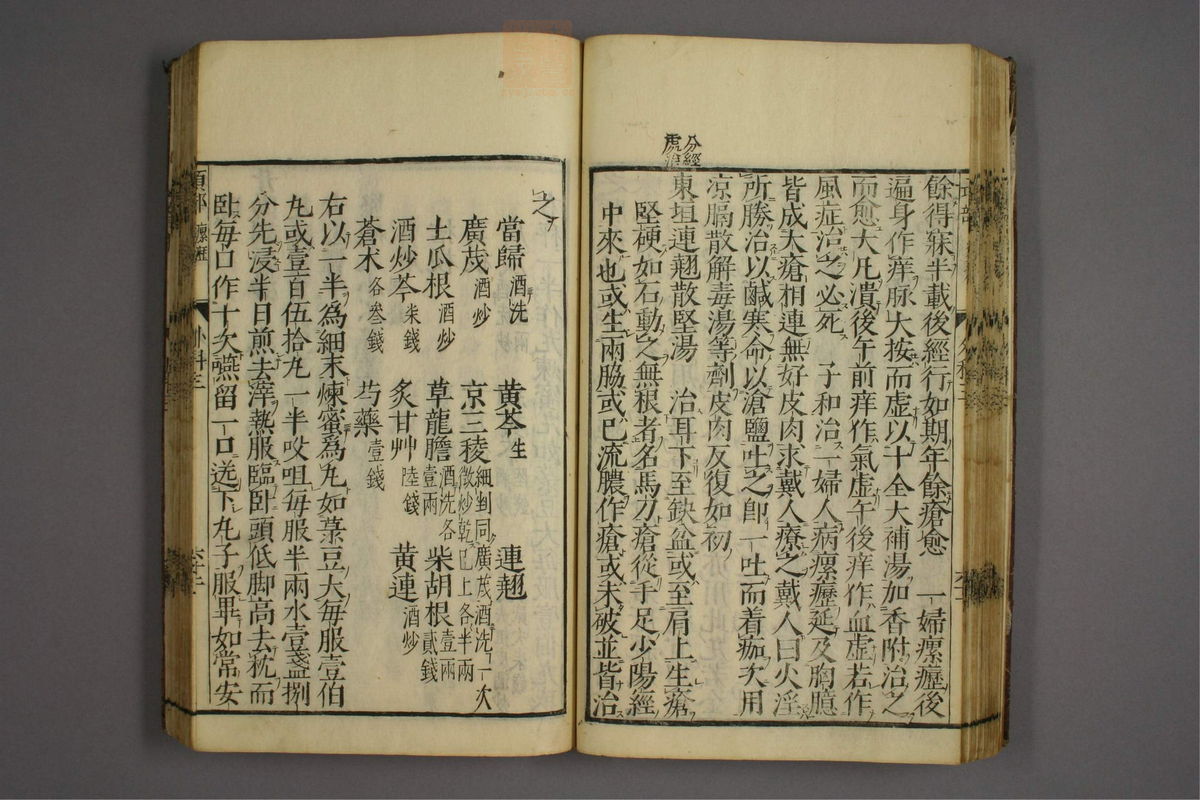 分經
處治
餘得寐半載後經行如期年餘瘡愈　一婦瘰癧後
遍身作痒脉大按而虚以十全大補湯加香附治之
而愈大凡潰後午前痒作氣虚午後痒作血虚若作
風症治之必死　子和治一婦人病瘰癧延及胸臆
皆成大瘡相連無好皮肉求戴人療之戴人曰火淫
所勝治以鹹寒命以滄鹽吐之卽一吐而着痂次用
凉膈散解毒湯等劑皮肉反復如初
東垣連翹散堅湯　治耳下至缺盆或至肩上生瘡
堅硬如石動之無根者名馬刀瘡從手足少陽經
中來也或生兩脇或已流膿作瘡或未破並皆治
之
當歸酒洗　黄芩生　連翹
廣茂酒炒　京三稜細剉同廣茂酒洗一次微炒乾已上各半兩
土瓜根酒炒　草龍膽酒洗各壹兩　柴胡根壹兩貳錢
酒炒芩柒錢　炙甘艸陸錢　黄連酒炒
蒼术各叁錢　芍藥壹錢
右以一半爲細末煉蜜爲丸如菉豆大每服壹伯
丸或壹百伍拾丸一半㕮咀每服半兩水壹盞捌
分先浸半日煎去滓熱服臨卧頭低脚高去枕而
卧每口作十次嚥留一口送下丸子服畢如常安
項部　瘰癧　外科三　六十二